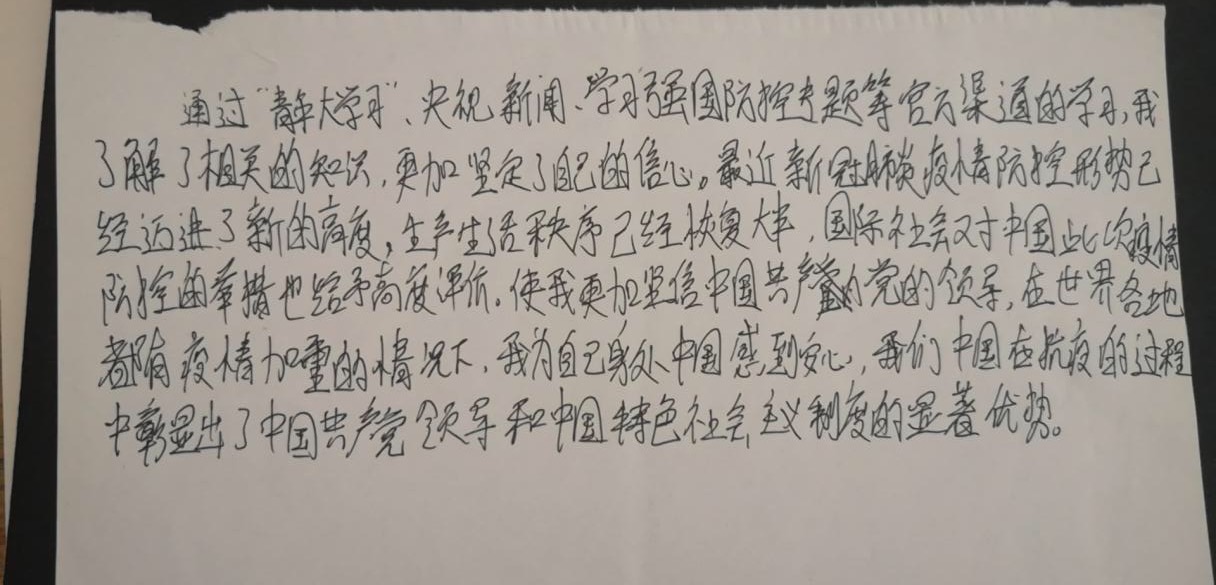 通过“青年大学习”、央视新闻、学习强国防控专题等官方渠道的学习,我
了解了相关的知识,更加坚定了自己的信心。最近新冠肺炎疫情防控形势已
经迈进了新的高度,生产生活秩序已经恢复大半,国际社会对中国此次疫情
防控的举措也给予高度评价。使我更加坚信中国共产党的领导,在世界各地
都有疫情加重的情况下,我为自己身处中国感到安心,我们中国在抗疫的过程
中彰显出了中国共产党领导和中国特色社会主义制度的显著优势。